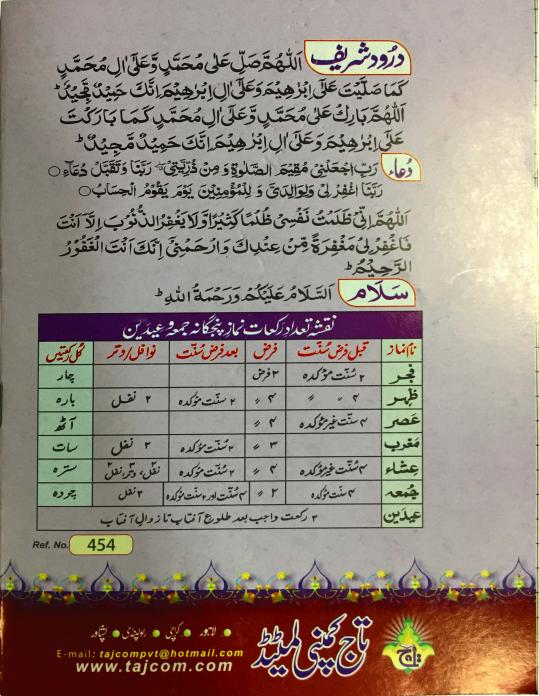 درود شریف اَللّٰهُمَّ صَلِّ عَلٰی مُحَمَّدٍ وَّعَلٰٓی اٰلِ مُحَمَّدٍ
کَمَا صَلَّیْتَ عَلٰٓی اِبْرٰهِیْمَ وَعَلٰٓی اٰلِ اِبْرٰهِیْمَ اِنَّکَ حَمِیْدٌ مَّجِیْدٌ ط
اَللّٰهُمَّ بَارِکْ عَلٰی مُحَمَّدٍ وَّعَلٰٓی اٰلِ مُحَمَّدٍ کَمَا بَارَکْتَ
عَلٰٓی اِبْرٰهِیْمَ وَعَلٰٓی اٰلِ اِبْرٰهِیْمَ اِنَّکَ حَمِیْدٌ مَّجِیْدٌ ط
دُعاء رَبِّ اجْعَلْنِیْ مُقِیْمَ الصَّلٰوةِ وَمِنْ ذُرِّیَّتِیْ رَبَّنَا وَتَقَبَّلْ دُعَآءِ ○
رَبَّنَا اغْفِرْ لِیْ وَلِوَالِدَیَّ وَ لِلْمُؤْمِنِیْنَ یَوْمَ یَقُوْمُ الْحِسَابُ ○
اَللّٰهُمَّ اِنِّیْ ظَلَمْتُ نَفْسِیْ ظُلْمًا کَثِیْرًا وَّلَا یَغْفِرُ الذُّنُوْبَ اِلَّآ اَنْتَ
فَاغْفِرْ لِیْ مَغْفِرَةً مِّنْ عِنْدِکَ وَارْحَمْنِیْ اِنَّکَ اَنْتَ الْغَفُوْرُ
الرَّحِیْمُ ط
سَلَام اَلسَّلَامُ عَلَیْکُمْ وَرَحْمَةُ اللّٰهِ ط
نقشہ تعداد رکعات نماز پنجگانہ جمعہ و عیدین
نام نماز قبل فرض سُنّت فرض بعد فرض سُنّت نوافل روتر کُل رکعتیں
فجر ۲ سُنّت مؤکدہ ۲ فرض چار
ظہر ۴ " " ۴ " ۲ سنّت مؤکدہ ۲ نفل بارہ
عصر ۴ سنّت غیر مؤکدہ ۴ " آٹھ
مغرب ۳ " ۲ سنّت مؤکدہ ۲ نفل سات
عشاء ۴ سنّت غیر مؤکدہ ۴ " ۲ سنّت مؤکدہ نفل، وتر، نفل سترہ
جُمعہ ۴ سنّت مؤکدہ ۲ " ۴ سُنّت اور ۲ سنّت مؤکدہ ۲ نفل چودہ
عیدین ۲ رکعت واجب بعد طلوع آفتاب تا زوالِ آفتاب
Ref. No. 454
تاج کمپنی لمیٹڈ
• لاہور • کراچی • راولپنڈی • پشاور
E-mail: tajcompvt@hotmail.com
www.tajcom.com
تاج